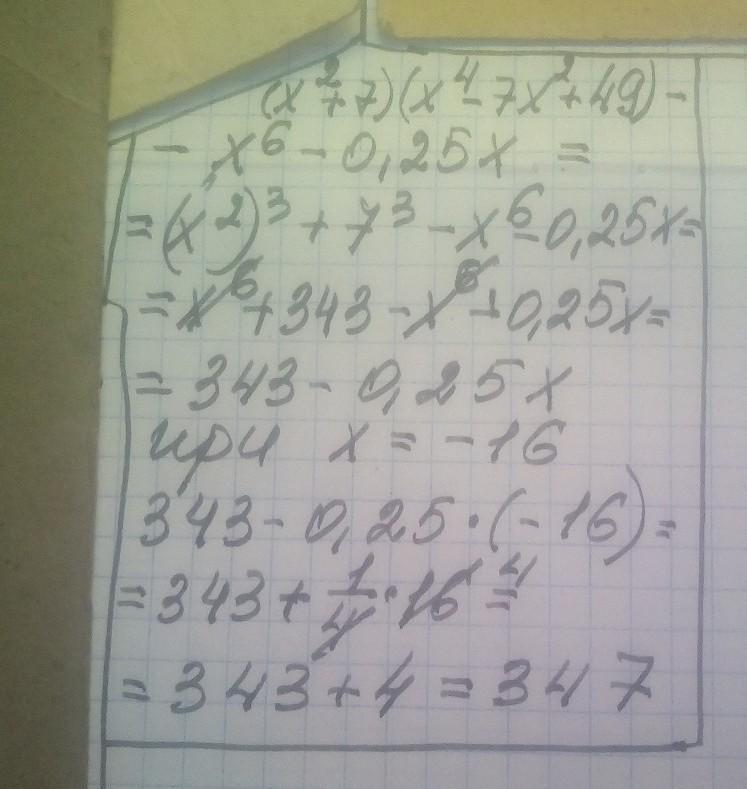 (x²+7)(x⁴-7x²+49)-
- x⁶ - 0,25x =
= (x²)³ + 7³ - x⁶ - 0,25x =
= x⁶ + 343 - x⁶ - 0,25x =
= 343 - 0,25x
при x = -16
343 - 0,25 · (-16) =
= 343 + 1/4 · 16 ⁴ =
= 343 + 4 = 347